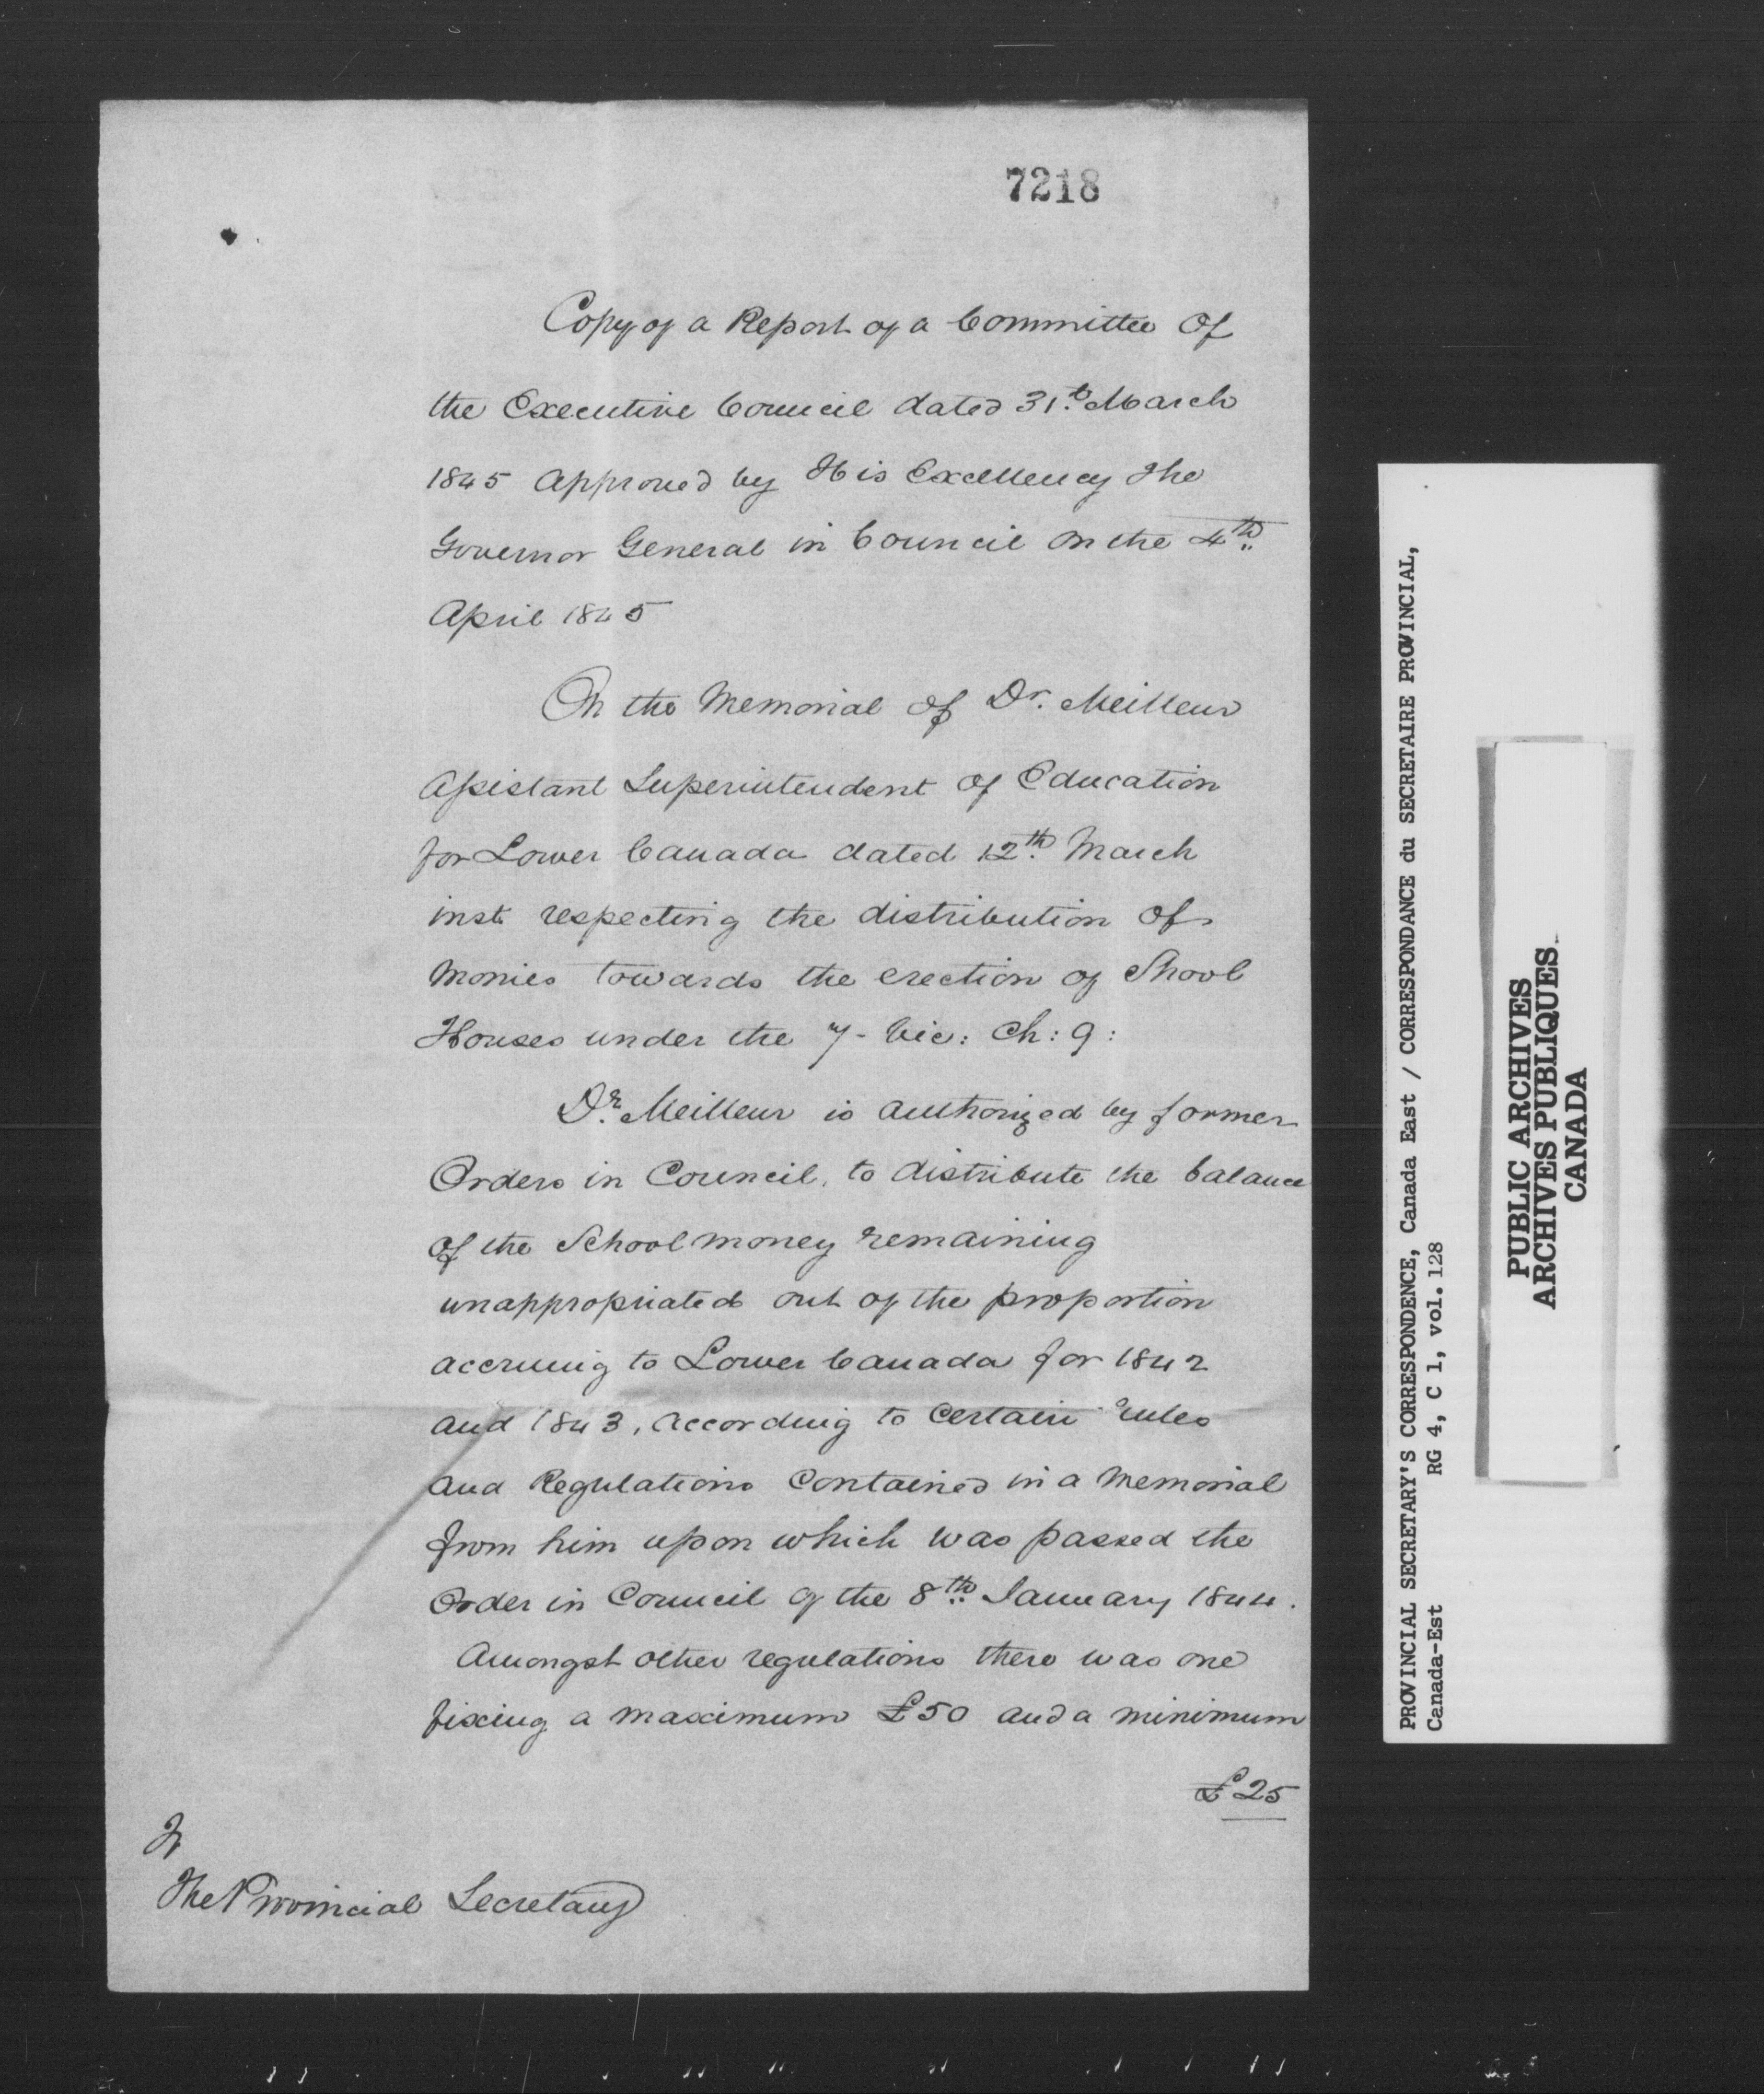 7218
Copy of a Report of a Committee of
the Executive Council dated 31st March
1845 Approved by His Excellency The
Governor General in Council on the 4th
April 1845
On the Memorial of Dr. Meilleur
Assistant Superintendent of Education
for Lower Canada dated 12th March
inst respecting the distribution of
Monies towards the erection of Shool
Houses under the 7 - Vic: Ch: 9:
Dr. Meilleur is authorized by former
Orders in Council, to distribute the balance
of the School money remaining
unappropriated out of the proportion
accruing to Lower Canada for 1842
and 1843, according to certain rules
and Regulations Contained in a Memorial
from him upon which was passed the
Order in Council of the 8th January 1844.
Amongst other regulations there was one
fixing a maximum £50 and a minimum
£25
To
The Provincial Secretary
PROVINCIAL SECRETARY'S CORRESPONDENCE, Canada East / CORRESPONDANCE du SECRETAIRE PROVINCIAL,
Canada-Est RG 4, C 1, vol. 128
PUBLIC ARCHIVES
ARCHIVES PUBLIQUES
CANADA